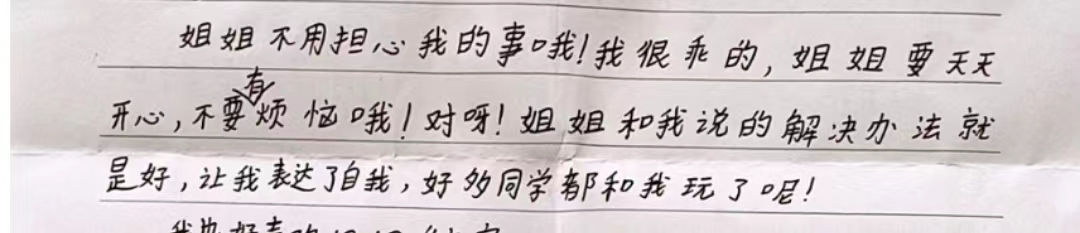 姐姐不用担心我的事哦!我很乖的,姐姐要天天
开心,不要有烦恼哦!对呀!姐姐和我说的解决办法就
是好,让我表达了自我,好多同学都和我玩了呢!